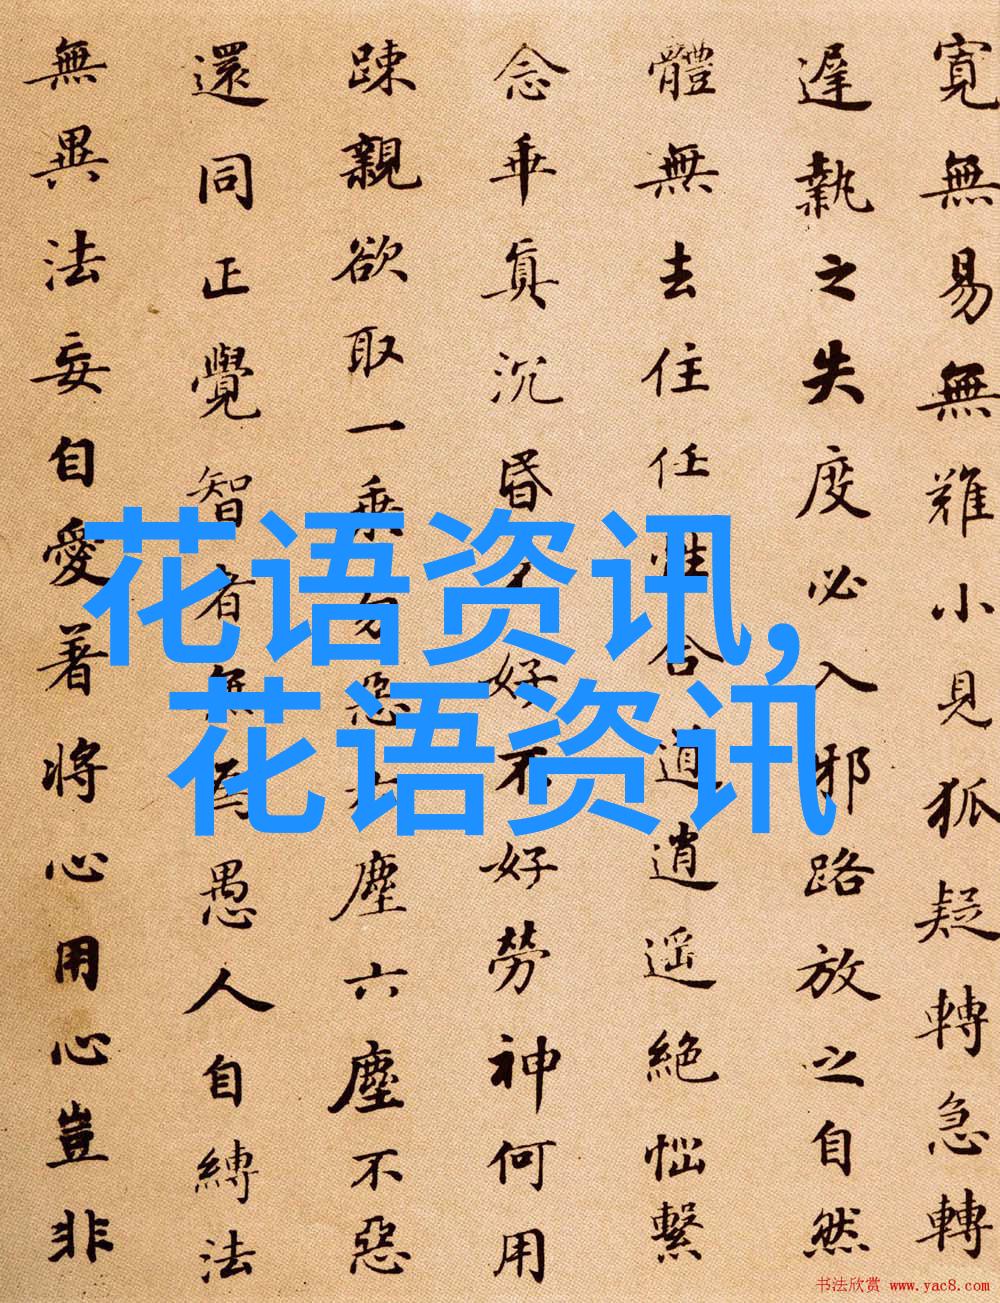 寬無易無難小見狐疑轉急轉
遲執之失度必入邪路放之自然
體無去住任性合道逍遥絶惱繫
念乖真沉昏不好不好勞神何用
踈親欲取一乘勿惡六塵六塵不惡
還同正覺智者無為愚人自縛法
無異法妄自愛著將心用心豈非
花语资讯,
花语资讯
书法欣赏 www.yac8.com